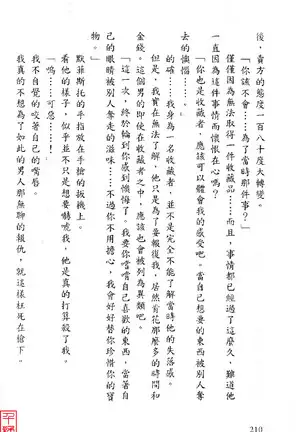 後，貴方的態度一百八十度大轉變。
「你該不會……為了當時那件事？」
僅僅因為無法取得一件收藏品……而且，事情都已經過了這麼久，難道他
一直因為這件事情而懷恨在心嗎？
「你也是收藏者，應該可以體會我的感受吧。當自己想要的東西被別人奪
去的懊惱……」
的確……我身為一名收藏者，並不是完全不能了解當時他的失落感。
但是，我實在無法了解，他只是為了要報復我，居然肯花那麼多的時間和
金錢。這個男的即使在收藏者之中，應該也會被列為異類吧。
「這一次，終於輪到你感到懊悔了。我要你嚐嚐自己喜歡的東西，當著自
己的眼睛被別人奪走的滋味……不過你不用擔心，我會好好替你珍惜你的寶
物。」
默菲斯托的手指扶在手槍的扳機上。
看他的樣子，似乎並不只是想要嚇唬我，他是真的打算殺了我。
「嗚……可惡……！」
我不自覺的咬著自己的嘴唇。
我真的不想為了如此的男人那無聊的報仇，就這樣枉死在槍下。
210